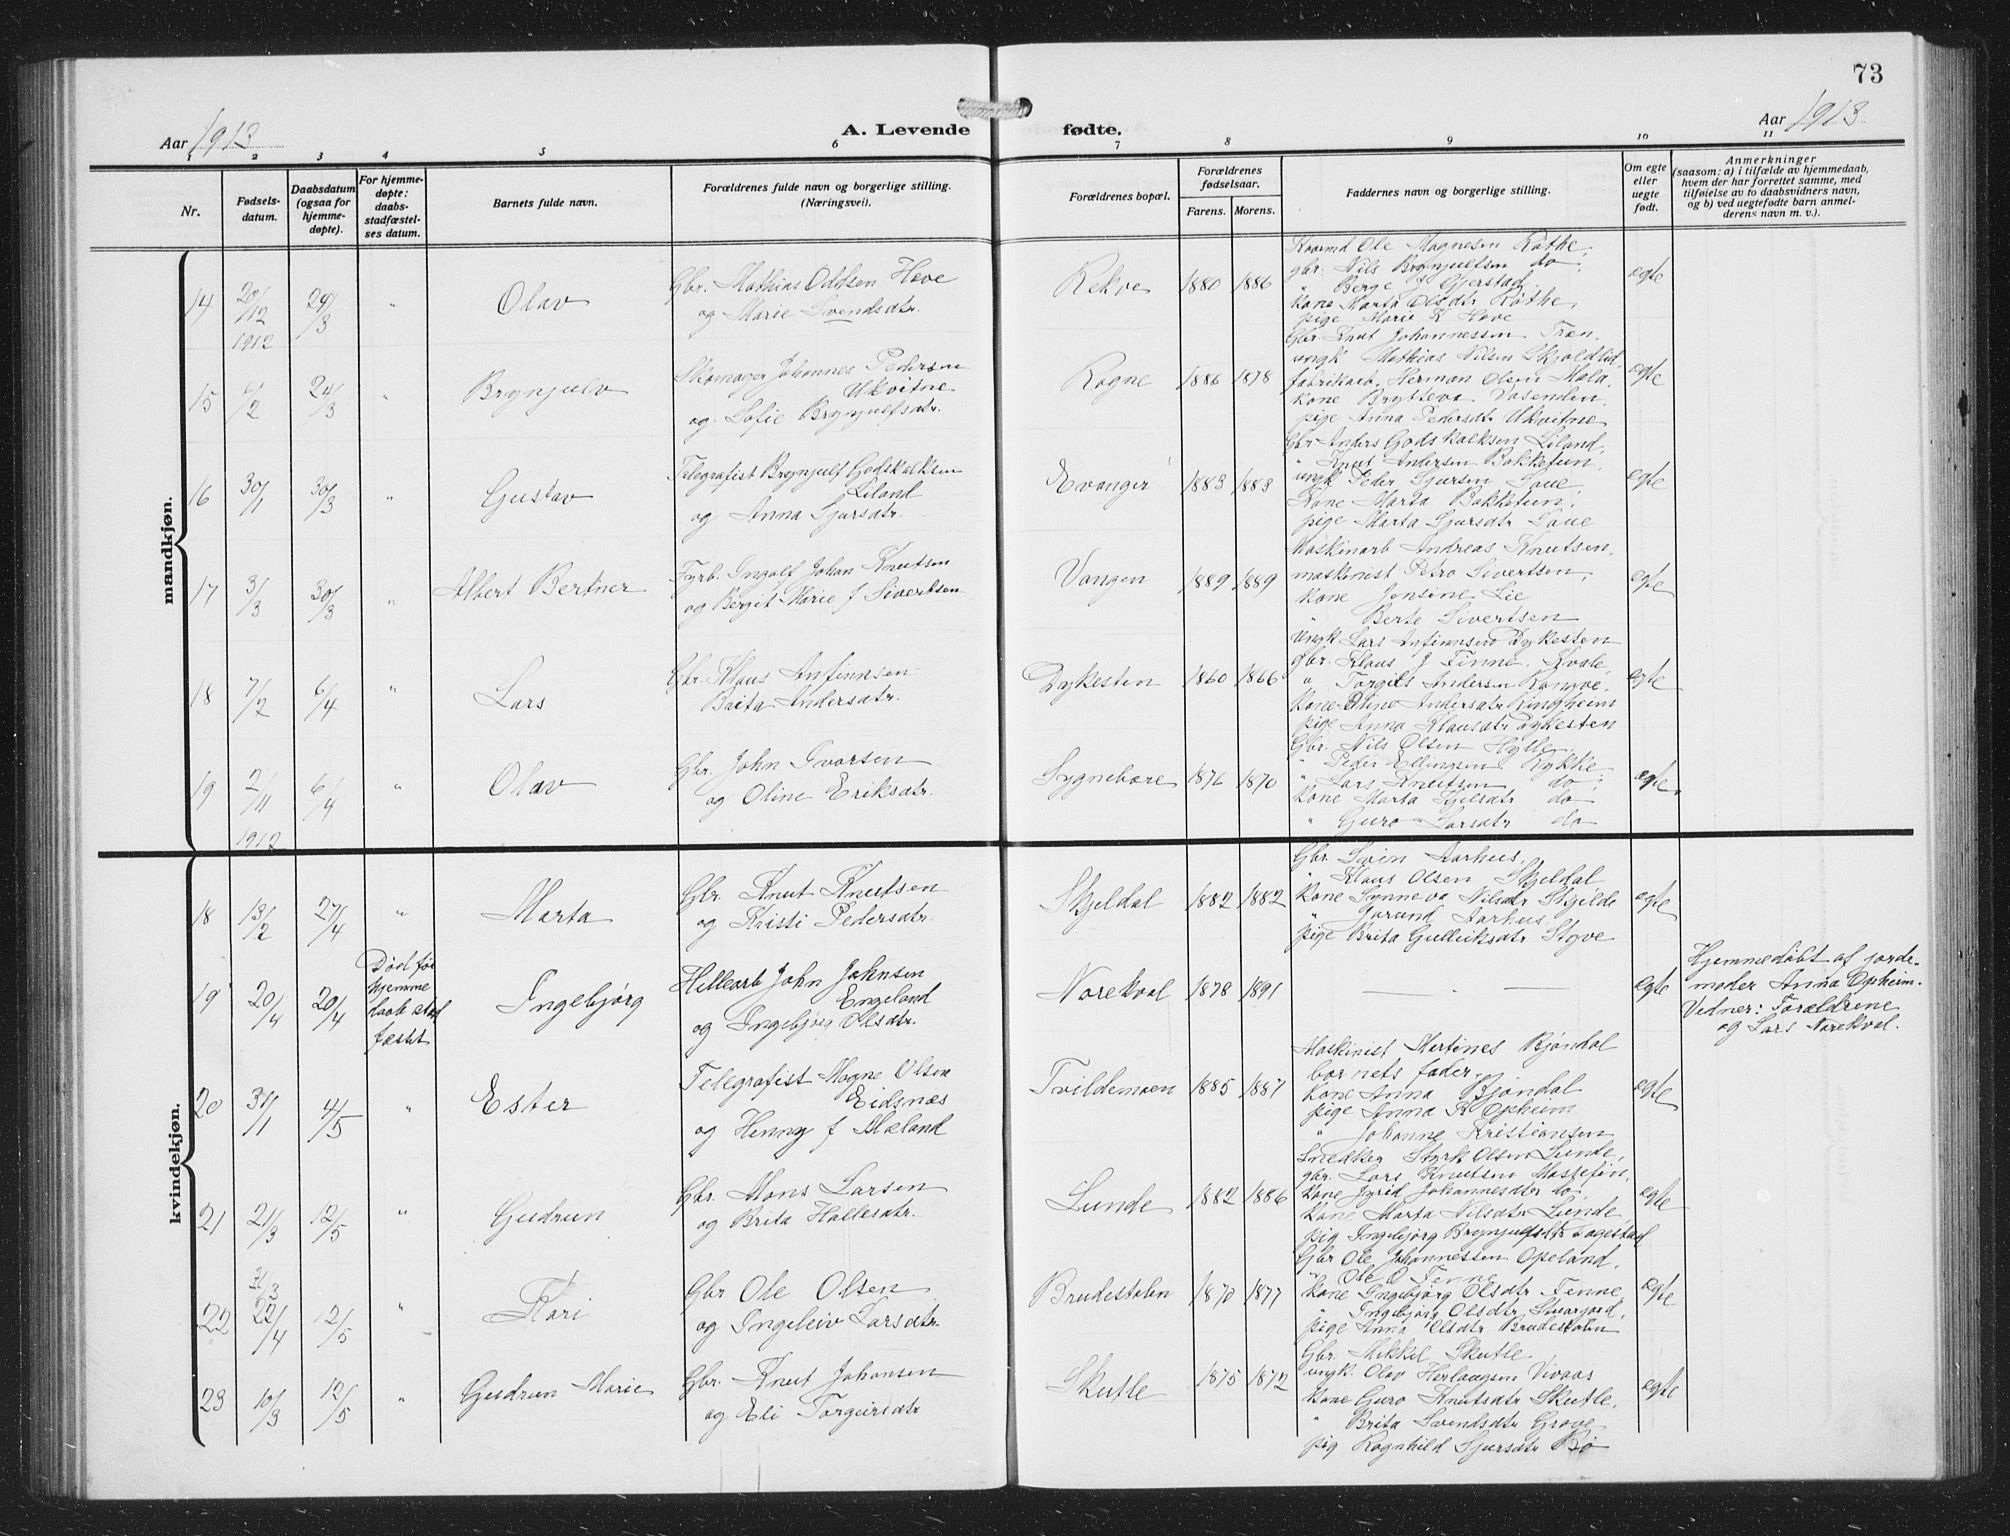 73
Aar 1913
A. Levende fødte.
Aar 1913
1 2 3 4 5 6 7 8 9 10 11
Nr.
Fødsels-
datum.
Daabsdatum
(ogsaa for
hjemme-
døpte).
For hjemme-
døpte:
daabs-
stadfæstel-
ses datum.
Barnets fulde navn.
Forældrenes fulde navn og borgerlige stilling.
(Næringsvei).
Forældrenes bopæl.
Forældrenes
fødselsaar.
Farens. Morens.
Faddernes navn og borgerlige stilling.
Om egte
eller
uegte
født.
Anmerkninger
(saasom: a) i tilfælde av hjemmedaab,
hvem der har forrettet samme, med
tilføielse av to daabsvidners navn,
og b) ved uegtefødte barn anmel-
derens navn m. v.).
mandkjøn.
14 20/12 1912 24/3 " Olav
Gbr. Mathias Oddsen Hove
og Marie Svendsdtr.
Rekve 1880 1886
Kaarmd Ole Magnesen Røthe,
gbr. Nils Brynjulfsen do,
" Berge Gjerstad,
kone Marta Olsdtr Røthe,
pige Marie K Hove
egte
15 6/2 24/3 " Brynjulv
Skomager Johannes Pedersen
Ukvitne
og Sofie Brynjulfsdtr.
Rogne 1886 1878
Gbr Knut Johannessen Træn,
ungk Mathias Nilsen Skjoldlid,
fabrikarb. Herman Olsen Mala,
kone Brytteva Vasenden,
pige Anna Pedersdtr Ukvitne
egte
16 30/1 30/3 " Gustav
Telegrafist Brynjulf Godskalksen
Liland
og Anna Sjursdtr.
Evanger 1883 1883
Gbr Anders Godskalksen Liland,
" Knut Andersen Bakketun,
ungk Peder Sjursen Saue
Kone Marta Bakketun,
pige Marta Sjursdtr Saue
egte
17 3/3 30/3 " Albert Bertner
Fyrb. Ingolf Johan Knutsen
og Bergit Marie f Sivertsen
Vangen 1889 1889
Maskinarb Andreas Knutsen,
maskinist Petro Sivertsen,
kone Jonsine Lie
" Berte Sivertsen
egte
18 7/2 6/4 " Lars
Gbr. Klaus Anfinnsen
Brita Andersdtr.
Dykesten 1860 1866
Ungk Lars Anfinnsen Dykesten
gbr. Klaus J Finne, Kvale,
" Torgils Andersen Rongve,
kone Oline Andersdtr Ringheim
pige Anna Klausdtr Dykesten
egte
19 2/11 1912 6/4 " Olav
Gbr. John Ivarsen
og Oline Eriksdtr.
Sygnebere 1876 1870
Gbr. Nils Olsen Hylle,
" Peder Ellingsen Rykke
" Lars Knutsen do,
kone Marta Kjelsdtr do
" Guro Larsdtr do
egte
kvindekjøn.
18 13/2 27/4 " Marta
Gbr. Knut Knutsen
og Kristi Pedersdtr.
Skjeldal 1882 1882
Gbr. Svein Aarhus,
" Klaus Olsen Skjeldal
kone Synneva Nilsdtr Skjelde
" Jorund Aarhus,
pige Brita Gulleiksdtr Styve
egte
19 20/4 20/4
Død før
hjemme
daab stad
fæstet
Ingebjørg
Hellearb John Johnsen
Engeland
og Ingebjørg Olsdtr.
Norekval 1878 1891
— — —
egte
Hjemmedøbt af jorde-
moder Anna Opheim.
Vidner: Forældrene
og Lars Norekval.
20 31/1 4/5 " Ester
Telegrafist Magne Olsen
Eidsnæs
og Henny f Mæland
Tvildemoen 1885 1887
Maskinist Martines Bjøndal
barnets fader.
kone Anna Bjøndal
pige Anna K Opheim
" Johanne Kristiansen
egte
21 21/3 12/5 " Gudrun
Gbr. Mons Larsen
og Brita Hallesdtr.
Lunde 1882 1886
Snedker Styrk Olsen Lunde,
gbr. Lars Knutsen Mostefin,
kone Jyrid Johannesdtr do,
kone Marta Nilsdtr Lunde,
pig Ingebjørg Brynjulfsdtr Fagestad
egte
22 22/4 12/5 " Kari
Gbr Ole Olsen
og Ingeleiv Larsdtr.
Brudestolen 1870 1877
Gbr Ole Johannessen Opeland,
" Ole O Finne
kone Ingebjørg Olsdtr Finne,
" Ingebjørg Olsdtr
pige Anna Olsdtr Brudestolen
egte
23 10/3 12/5 " Gudrun Marie
Gbr. Knut Johansen
og Eli Torgeirsdtr
Skutle 1875 1872
Gbr. Mikkel Skutle
ungk. Olav Herlaugsen Vivaas
kone Guro Knutsdtr Skutle,
" Brita Svendsdtr Grove
pig Ragnhild Sjursdtr Bø
egte